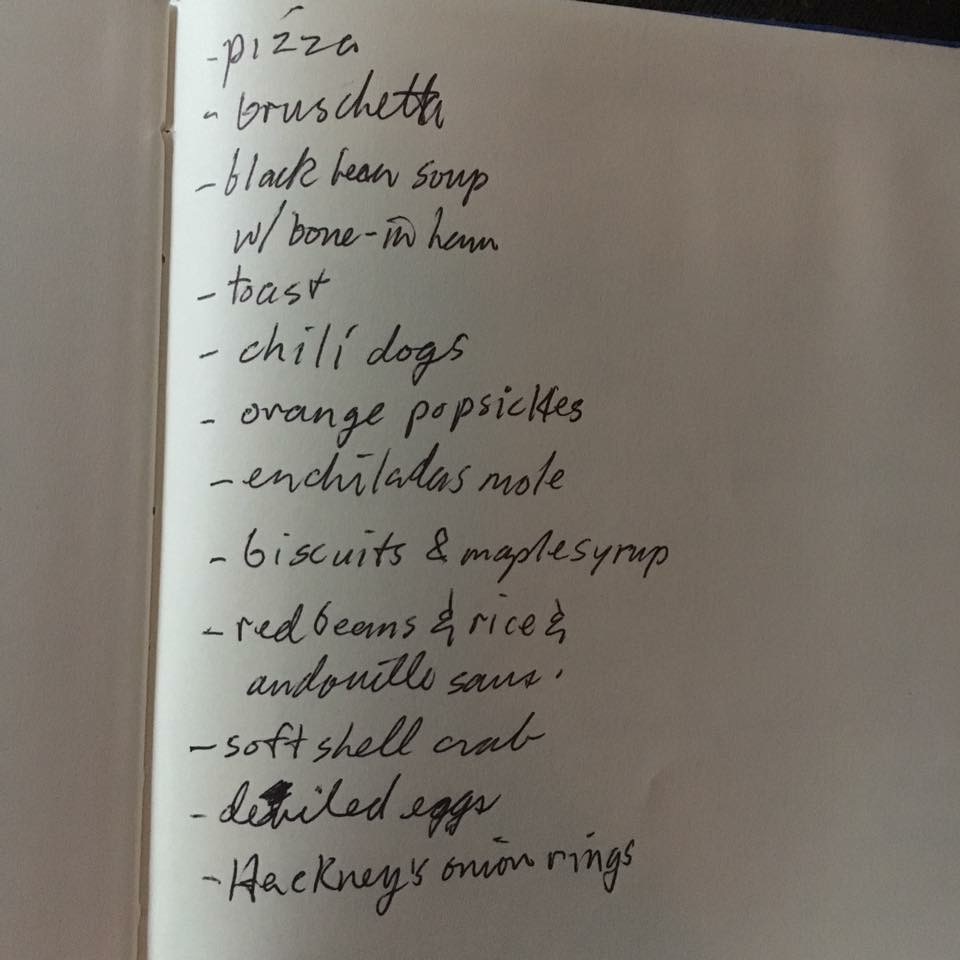 - pizza
- bruschetta
- black bean soup
w/ bone-in ham
- toast
- chili dogs
- orange popsickles
- enchiladas mole
- biscuits & maple syrup
- red beans & rice &
andouille saus.
- soft shell crab
- deviled eggs
- Hackney's onion rings